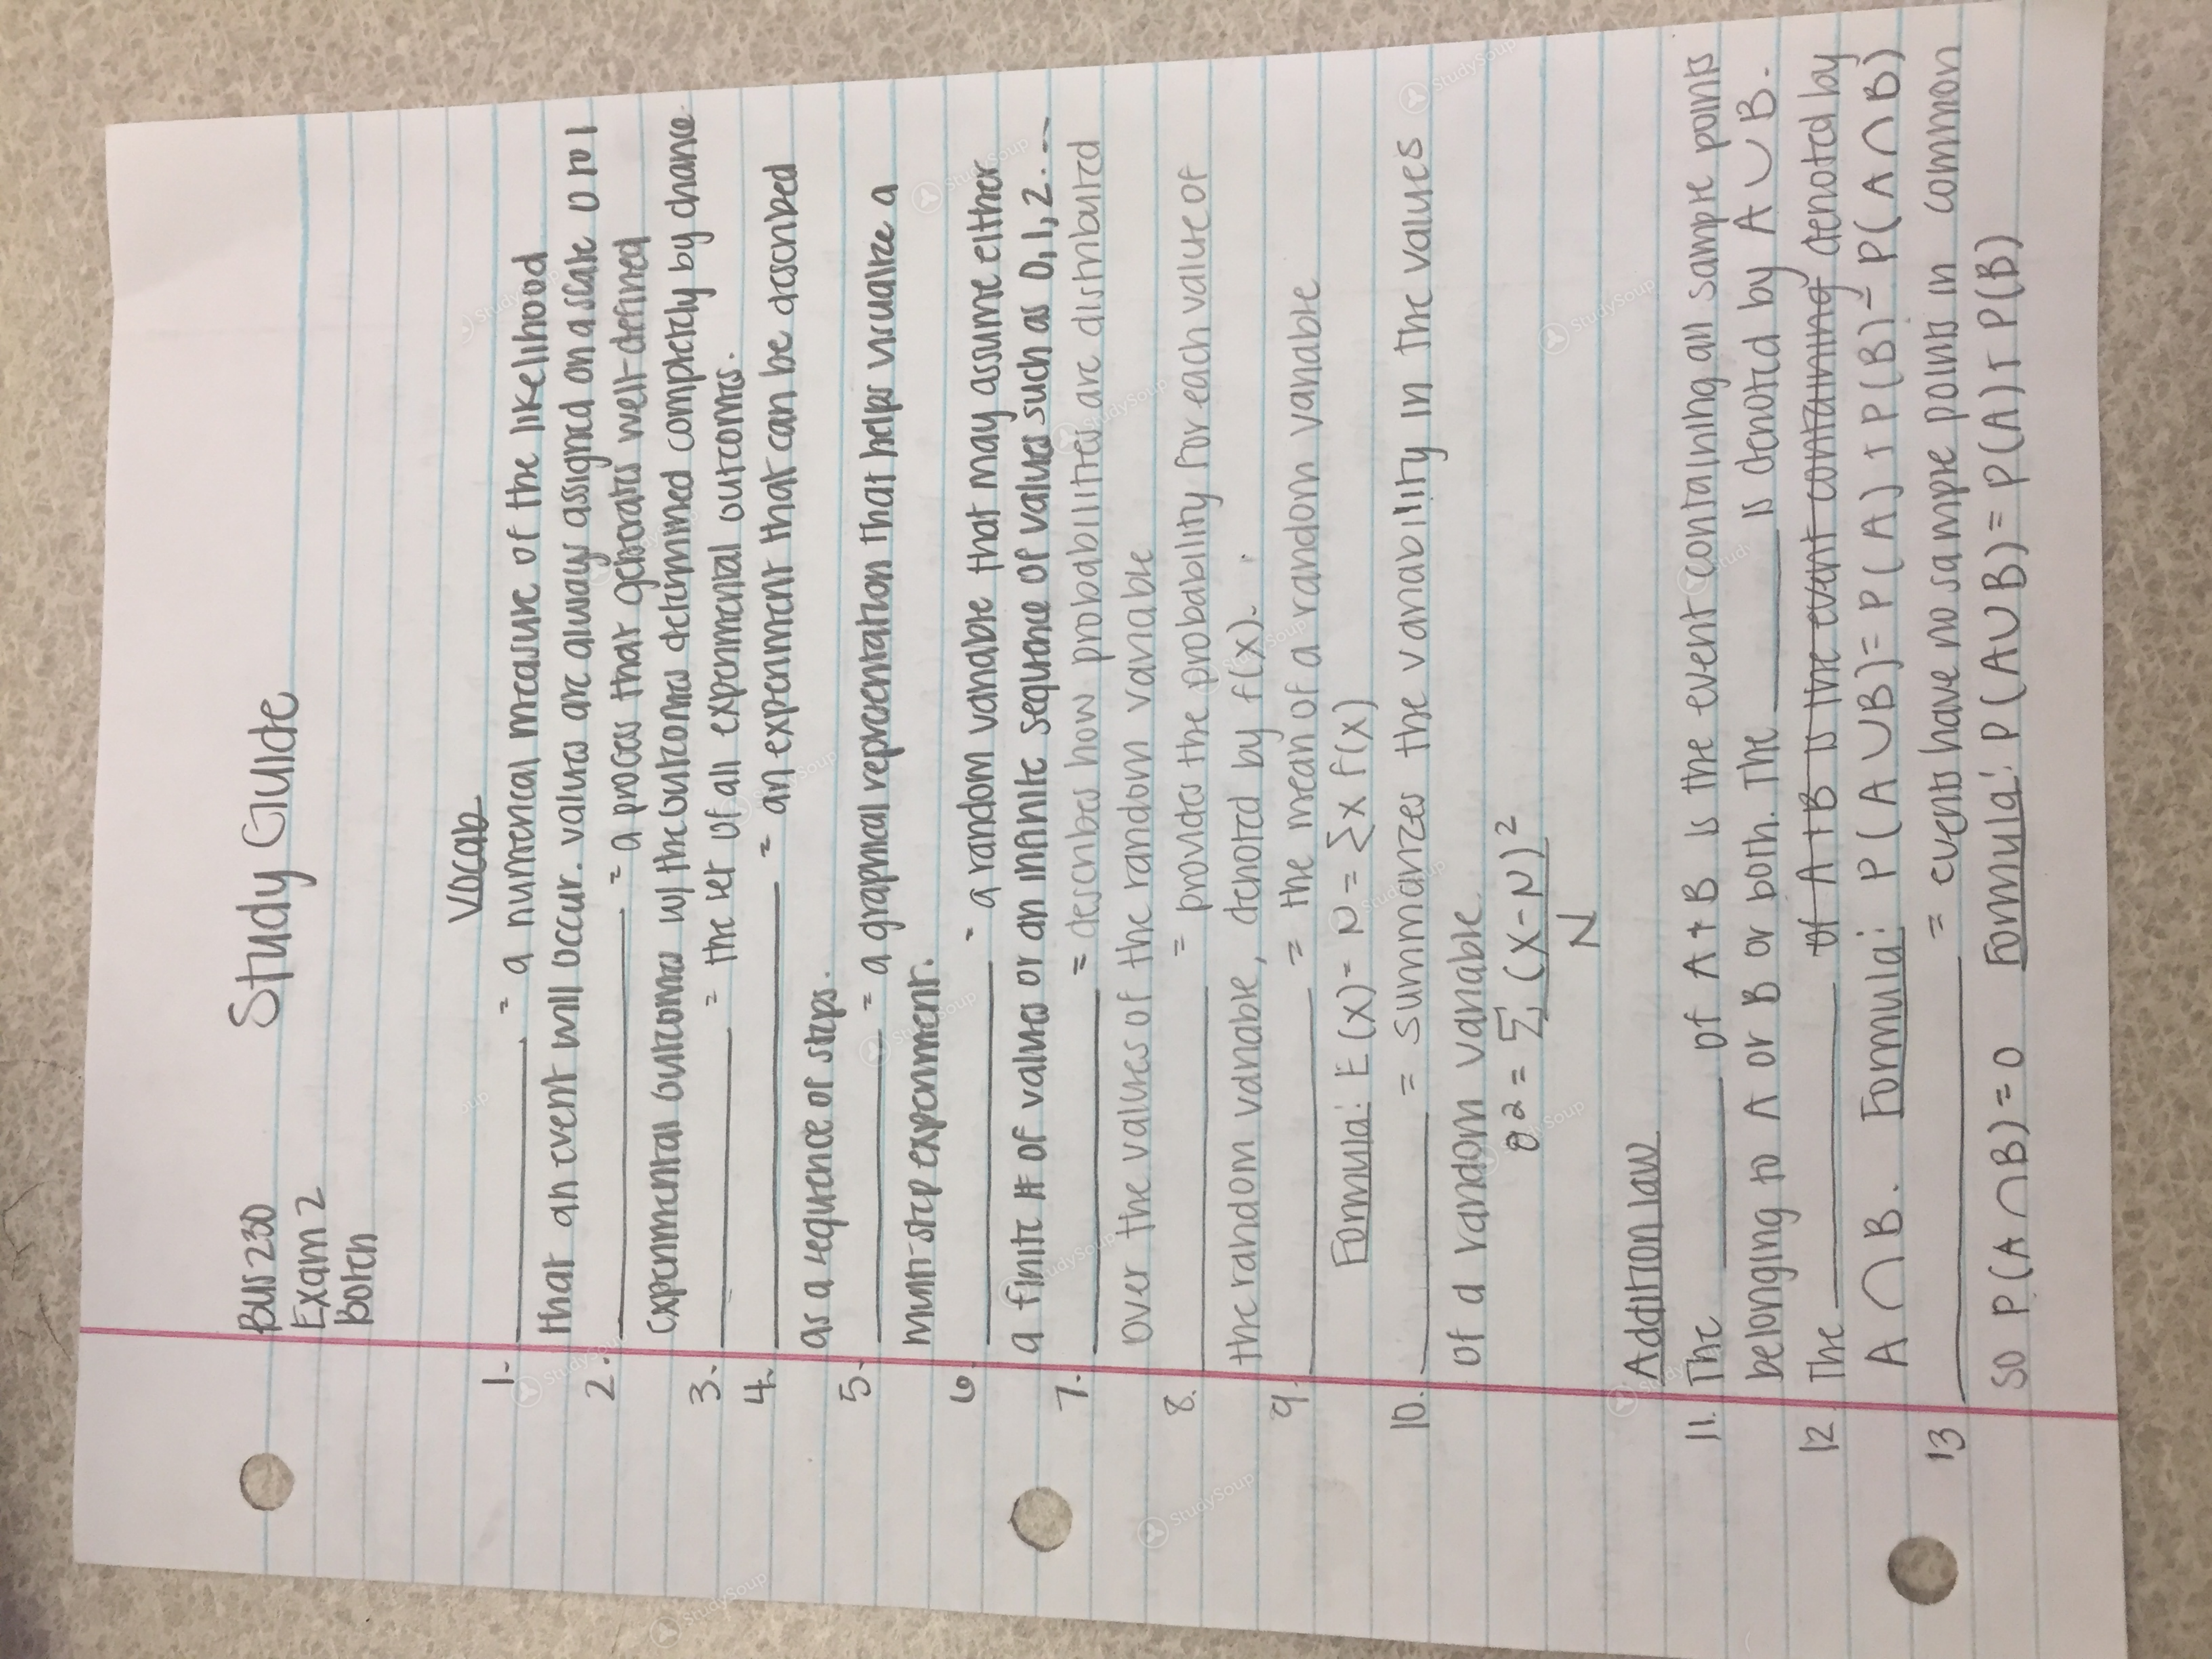 Bus 230 Study Guide
Exam 2
Botch
Vocab
1. ______ = a numerical measure of the likelihood
that an event will occur. values are always assigned on a scale 0 to 1
2. ______ = a process that generates well-defined
experimental outcomes w/ the outcomes determined completely by chance
3. ______ = the set of all experimental outcomes.
4. ______ = an experiment that can be described
as a sequence of steps.
5. ______ = a graphical representation that helps visualize a
multi-step experiment.
6. ______ = a random variable that may assume either
a finite # of values or an infinite sequence of values such as 0,1,2...
7. ______ = describes how probabilities are distributed
over the values of the random variable
8. ______ = provides the probability for each value of
the random variable, denoted by f(x).
9. ______ = the mean of a random variable
Formula: E(x) = N = Σx f(x)
10. ______ = summarizes the variability in the values
of a random variable.
σ2 = Σ (x-N)²
N
Addition law
11. The ______ of A+B is the event containing all sample points
belonging to A or B or both. The ______ is denoted by A∪B.
12 The ______ of A+B is the event containing denoted by
A∩B. Formula: P(A∪B) = P(A)+P(B)-P(A∩B)
13 ______ = events have no sample points in common
so P(A∩B)=0 Formula: P(A∪B)=P(A)+P(B)
StudySoup